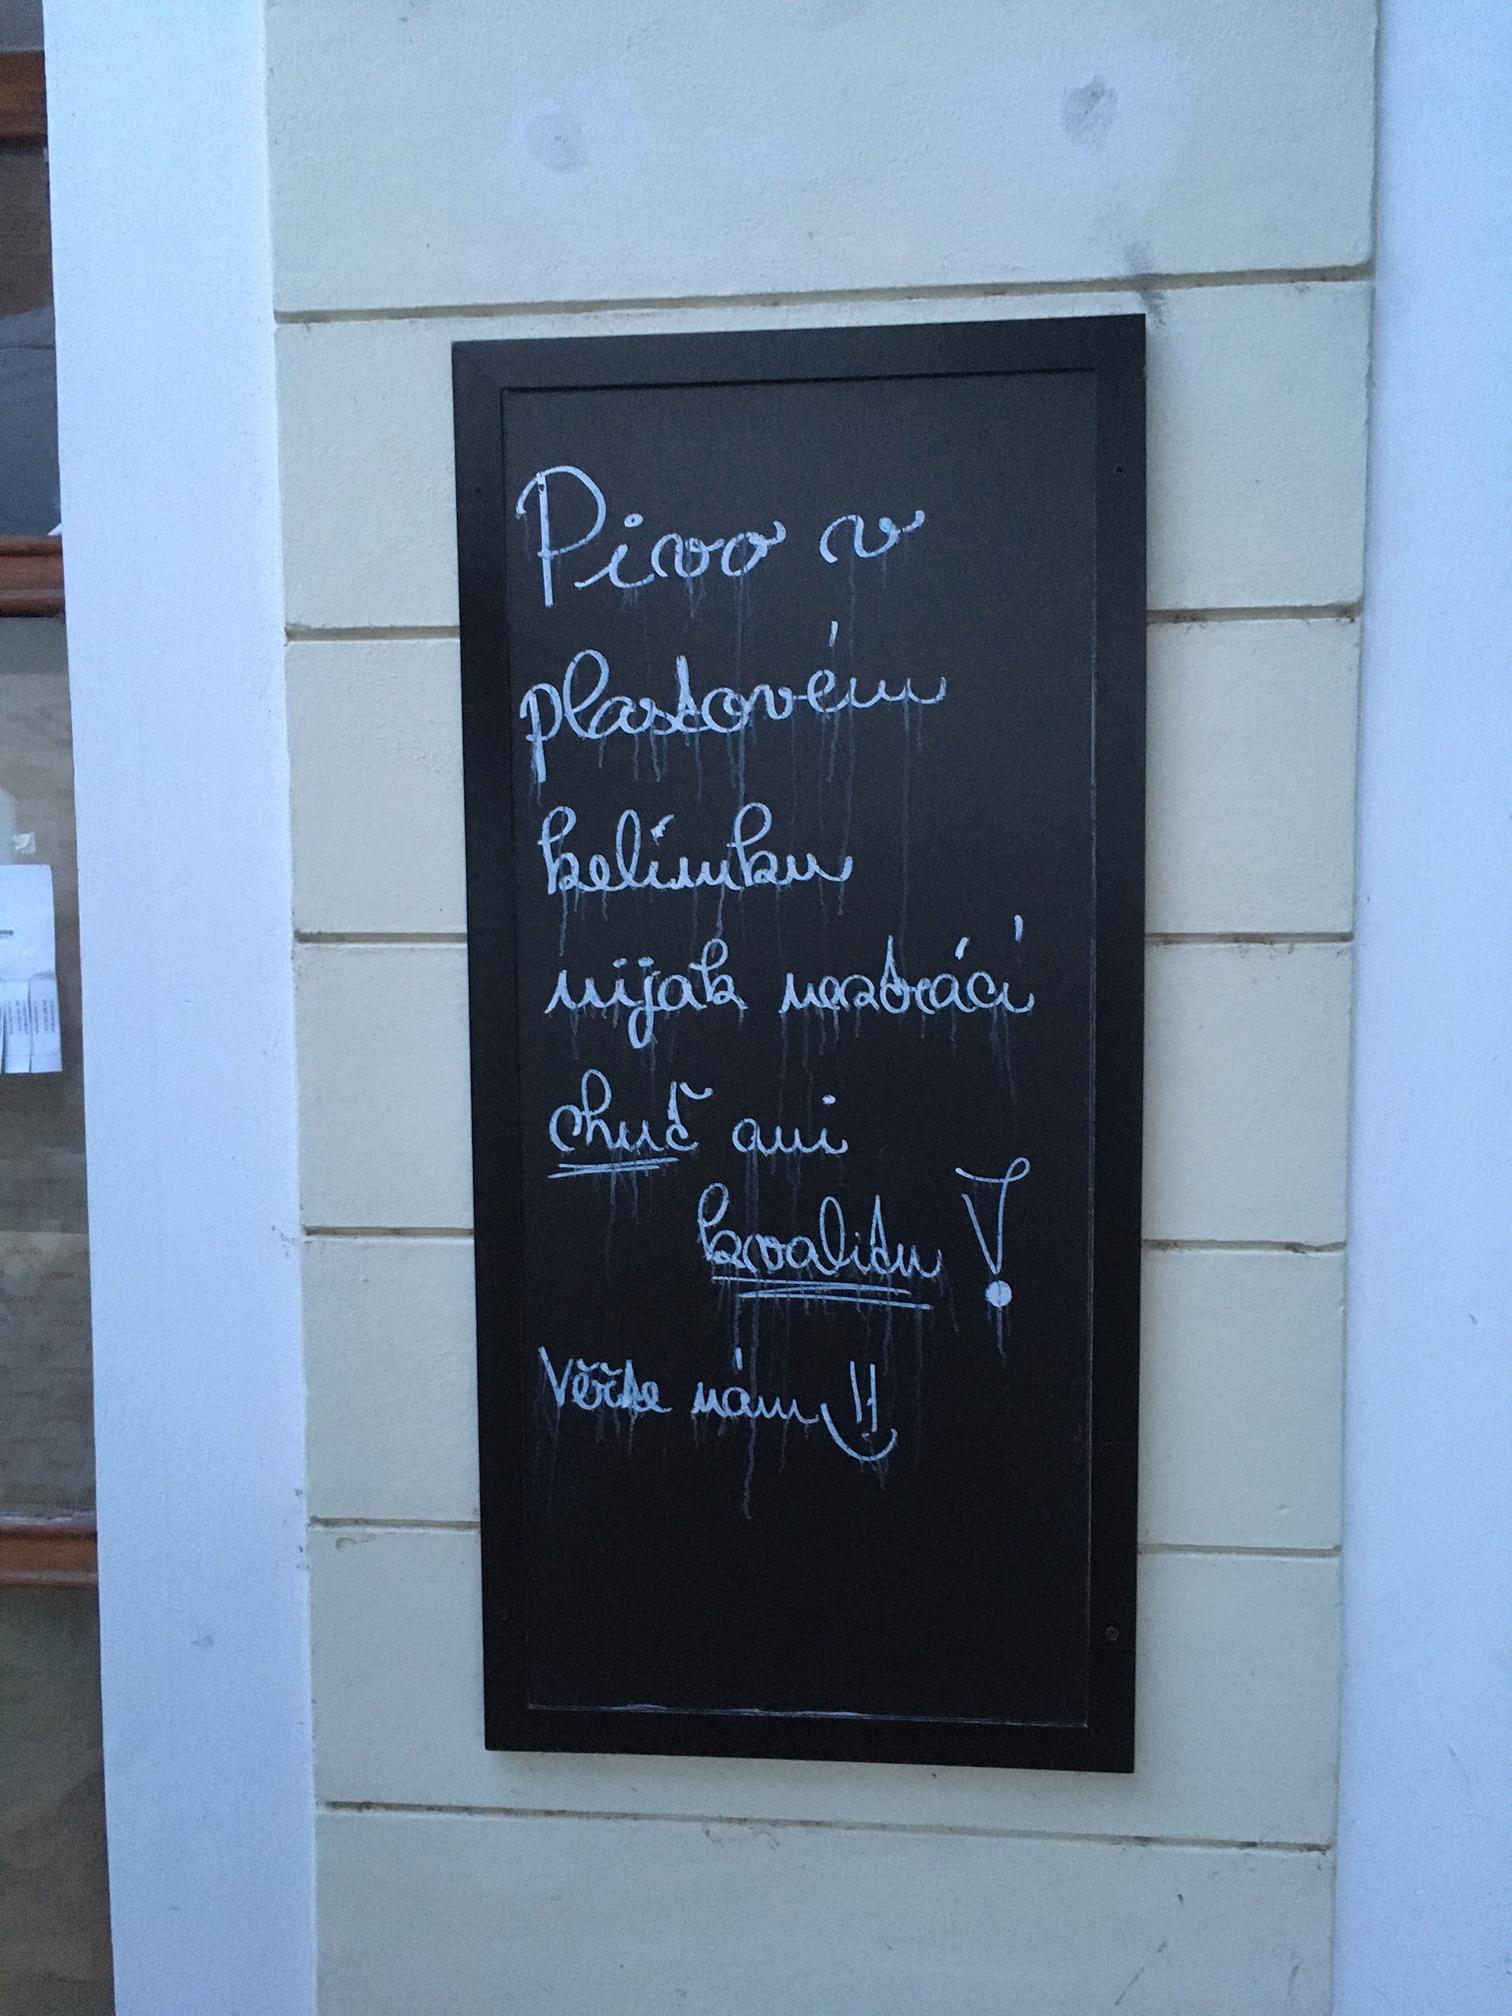 Pivo v
plastovém
kelímku
nijak neztrácí
chuť ani
kvalitu !
Věřte nám !!